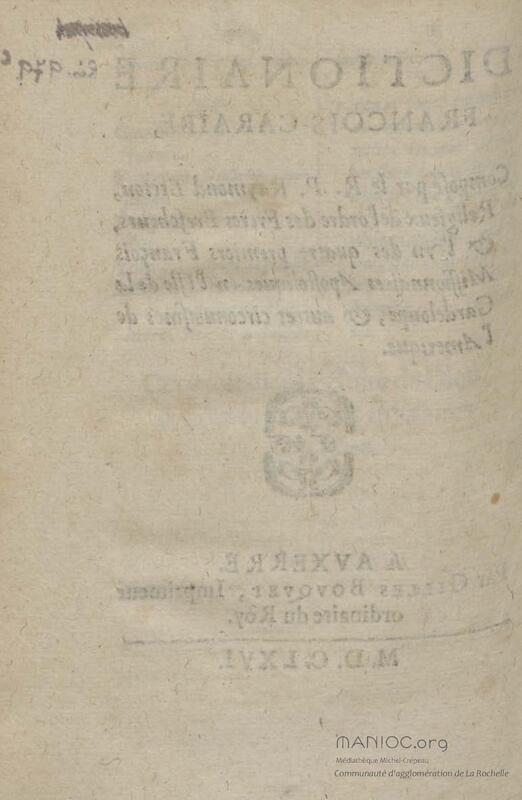 Ri. 979 C
DICTIONAIRE
FRANCOIS-CARAIBE,
Composé par le R. P. Raymond Breton,
Religieux de l'ordre des Freres Prescheurs,
& l'vn des quatre premiers François
Missionnaires Apostoliques en l'Isle de la
Gardeloupe, & autres circonuoisines de
l'Amerique.
A AVXERRE.
Par GILLES BOVQVET, Imprimeur
ordinaire du Roy.
M. D. C. LXVI.
MANIOC.org
Médiathèque Michel-Crépeau
Communauté d'agglomération de La Rochelle